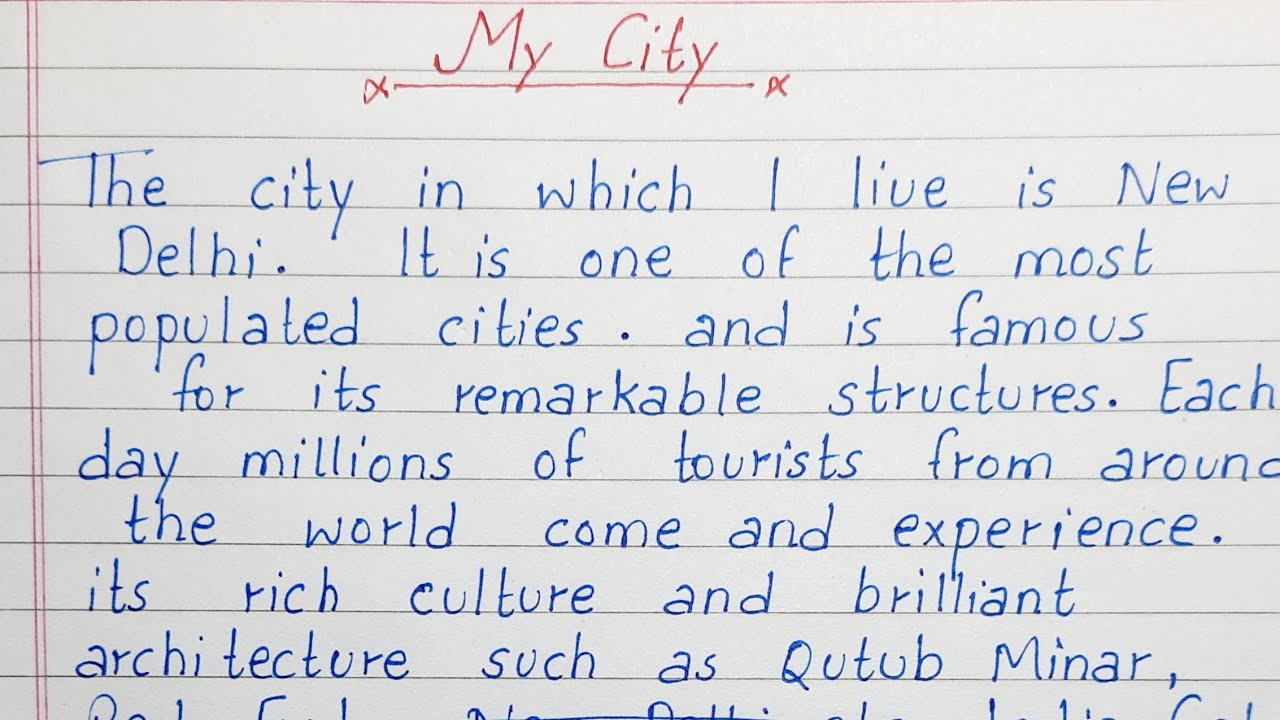 My City
The city in which I live is New
Delhi. It is one of the most
populated cities. and is famous
for its remarkable structures. Each
day millions of tourists from around
the world come and experience.
its rich culture and brilliant
architecture such as Qutub Minar,